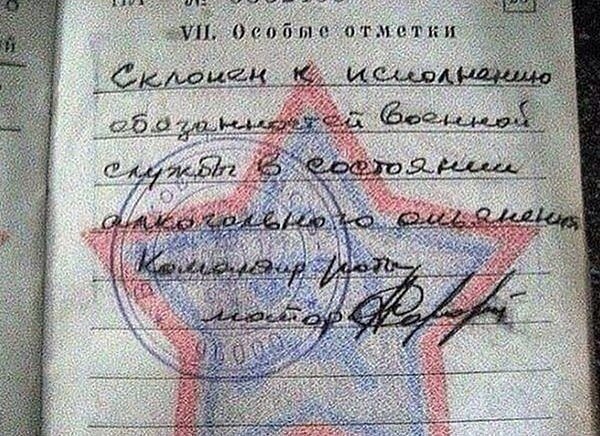 VII. Особые отметки
Склонен к исполнению
обязанностей военной
службы в состоянии
алкогольного опьянения
Командир роты
майор